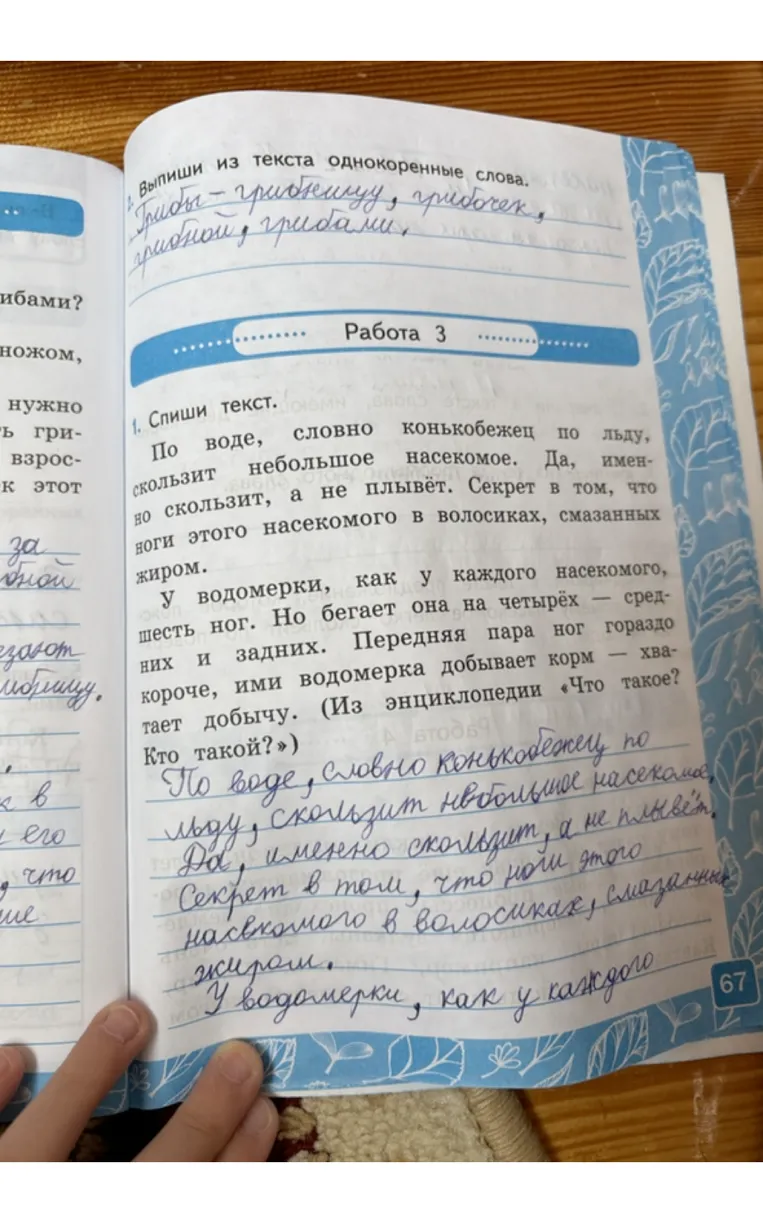 ибами?
ножом,
нужно
ь гри-
взрос-
к этот
за
бной
езают
ибницу.
к в
его
, что
ше
2. Выпиши из текста однокоренные слова.
Грибы – грибницу, грибочек,
грибной, грибами.
Работа 3
1. Спиши текст.
По воде, словно конькобежец по льду,
скользит небольшое насекомое. Да, имен-
но скользит, а не плывёт. Секрет в том, что
ноги этого насекомого в волосиках, смазанных
жиром.
У водомерки, как у каждого насекомого,
шесть ног. Но бегает она на четырёх — сред-
них и задних. Передняя пара ног гораздо
короче, ими водомерка добывает корм — хва-
тает добычу. (Из энциклопедии «Что такое?
Кто такой?»)
По воде, словно конькобежец по
льду, скользит небольшое насекомое.
Да, именно скользит, а не плывёт.
Секрет в том, что ноги этого
насекомого в волосиках, смазанных
жиром.
У водомерки, как у каждого
67